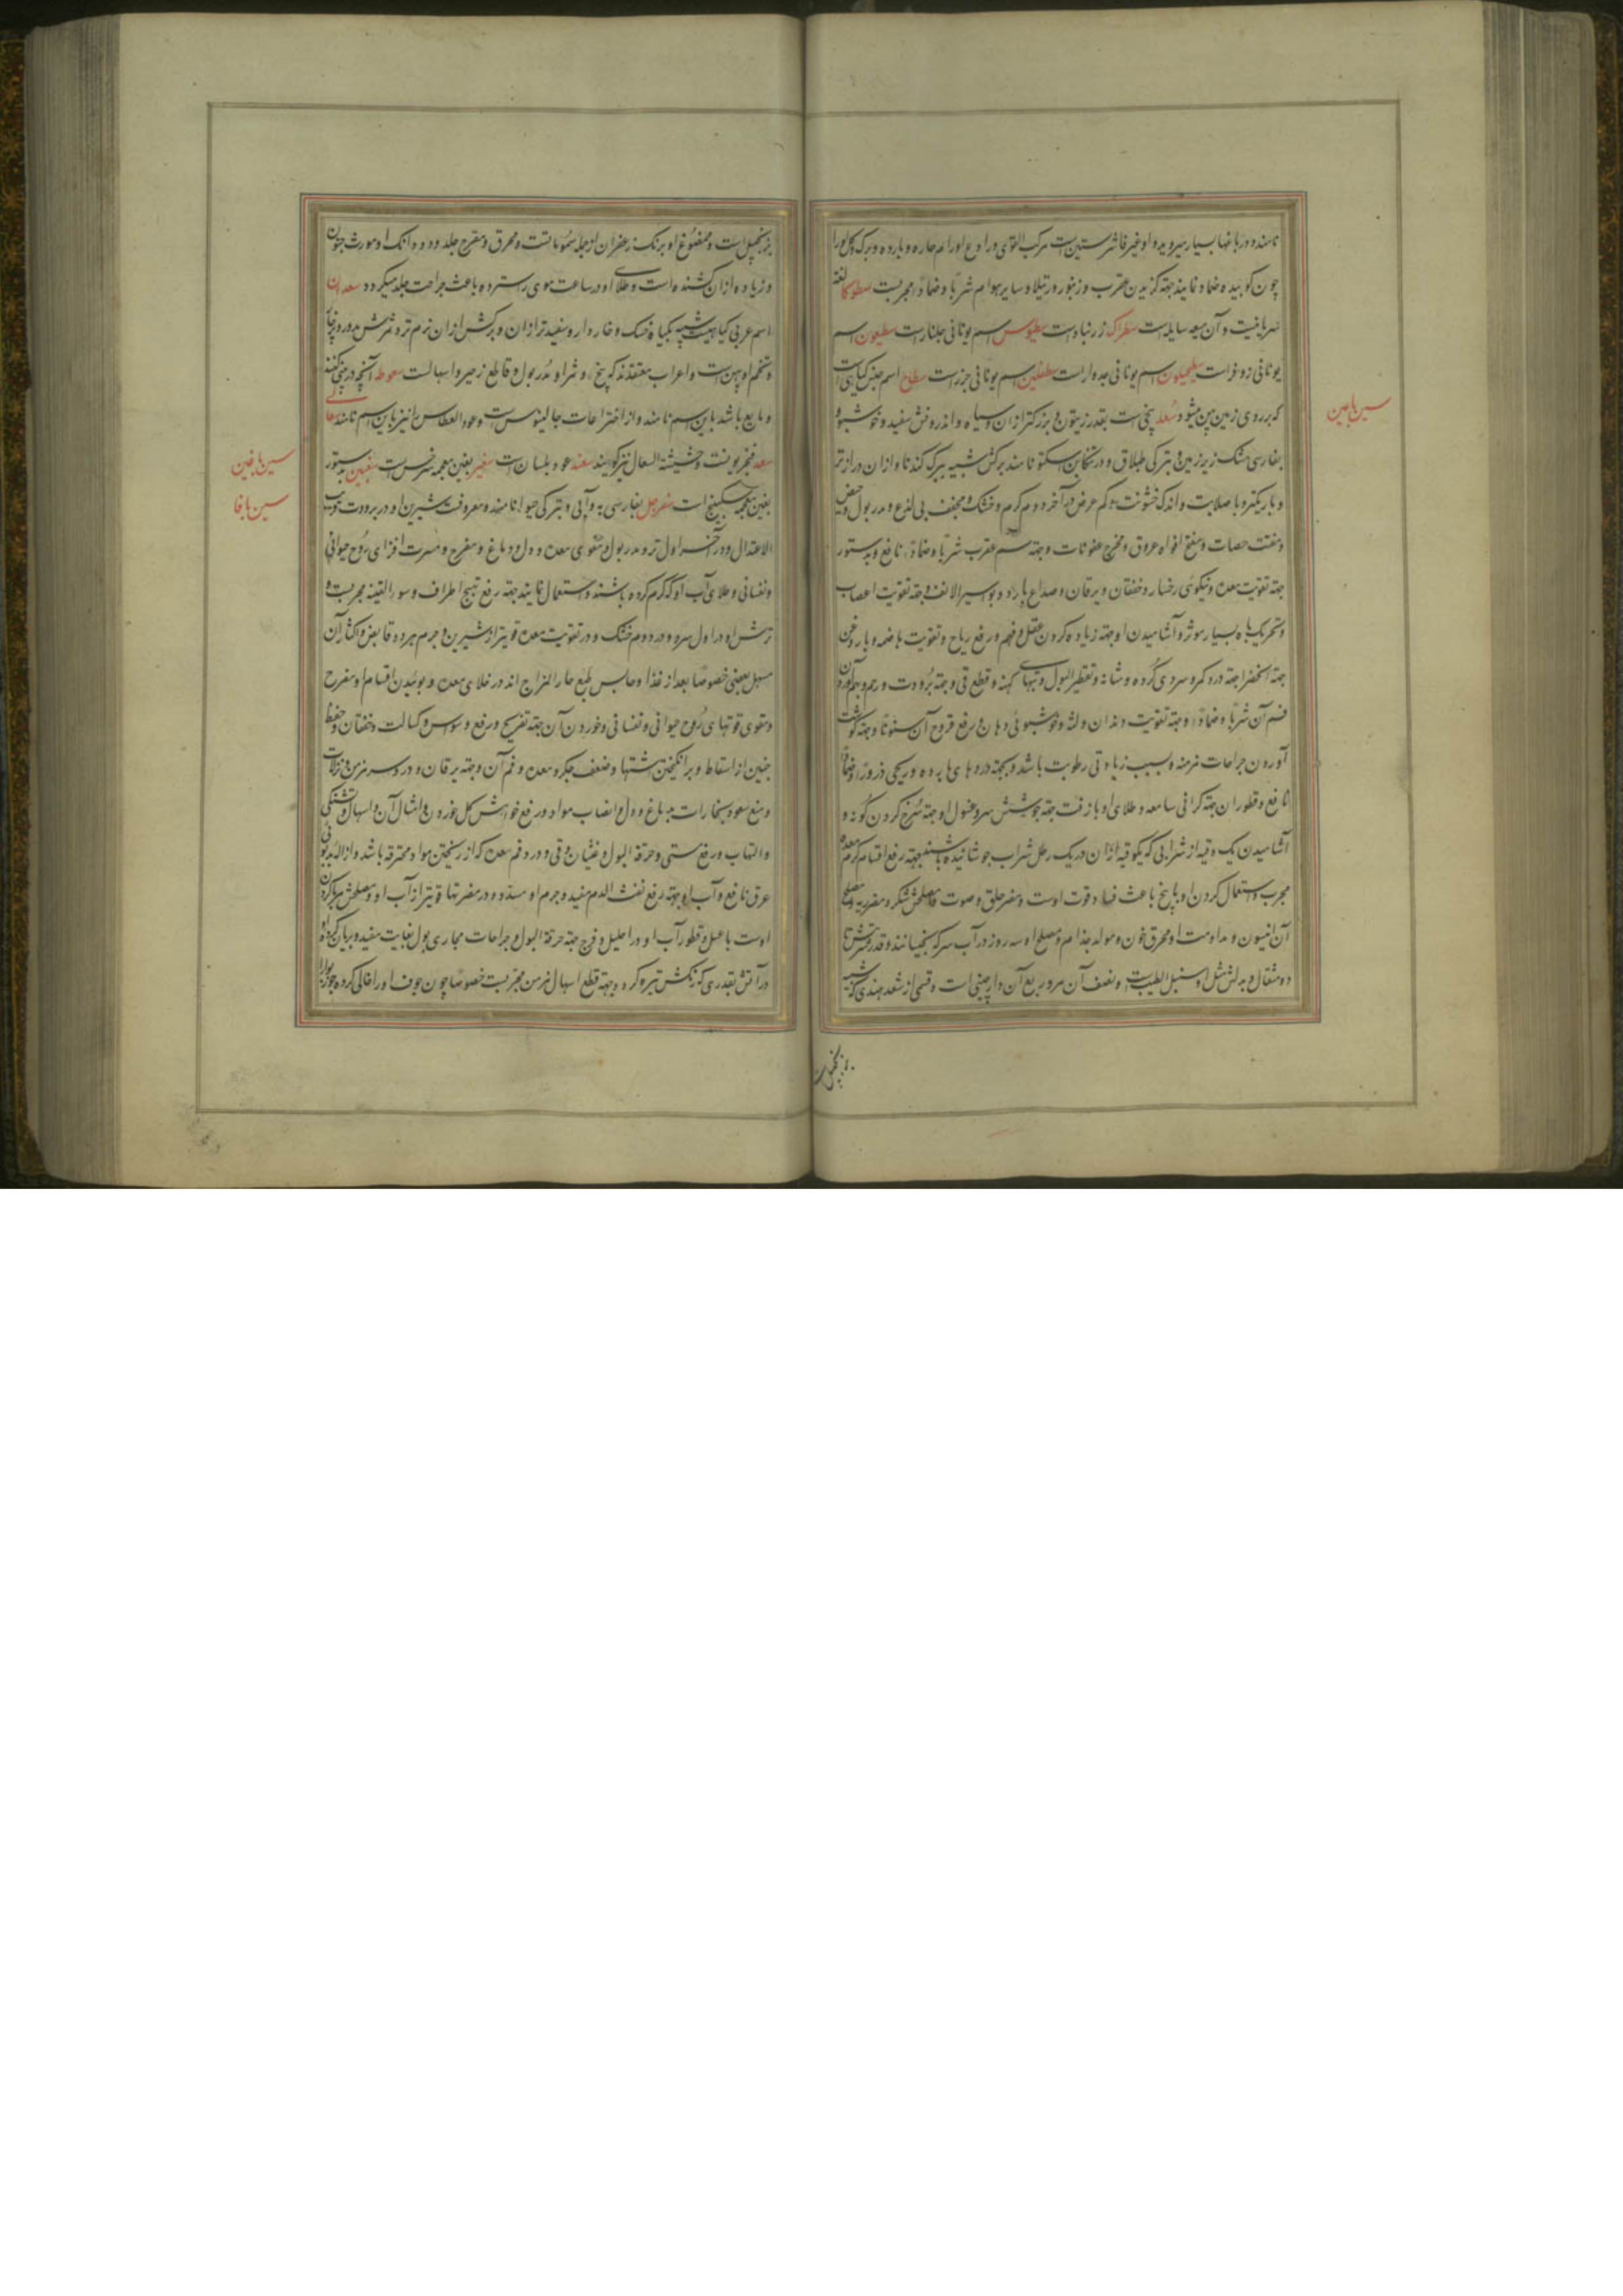 نامند و در باغها بسیار میروید و او غیر فاشرستین است مرکب القوی و رادع اورام حاره و بارده و برک و کل او را
چون کوبیده ضماد نمایند جهة کزیدن عقرب و زنبور و رتیلا و سایر هوام شربا و ضمادا مجربست سطوکا لغة
سریانیست و آن میعه سایله است سطراک زرنباد است سطیوس اسم یونانی جلنار است سطیون اسم
یونانی زوفرا است اسم یونانی جدوار است اسم یونانی جزر است سطاح اسم جنس کیاهی است
که بر روی زمین پهن میشود سعد بیخی است بقدر زیتون و بزرکتر از آن و سیاه و اندرونش سفید و خوشبو
بفارسی مشک زیر زمین و بترکی طبلاق و در تنکابن اسکتو نامند برکش شبیه ببرک کندنا و از آن درازتر
و باریکتر و با صلابت و اندک خشونت و کم عرض در آخر دوم کرم و خشک و مجفف بی لذع و مدر بول و حیض
و مفتت حصات و مفتح افواه عروق و مخرج عفونات و جهة سم عقرب شربا و ضمادا نافع و بدستور
جهة تقویت معده و نیکوئی رخسار و خفقان و یرقان و صداع بارد و بواسیر الانف و جهة تقویت اعصاب
و تحریک باه بسیار موثر و آشامیدن او جهة زیاده کردن عقل و فهم و رفع ریاح و تقویت هاضمه و با روغن
حبة الخضرا جهة درد کمر و سردی کرده و مثانه و تقطیر البول و تبهای کهنه و قطع قی و جهة برودت رحم و بهم آوردن
فم آن شربا و ضمادا و جهة تقویت دندان و لثه و خوشبوئی دهان و رفع قروح آن سنونا و جهة کوشت
آوردن جراحات مزمنه که بسبب زیادتی رطوبت باشد و بجهة دردهای بارده و ریحی ذرورا و ضمادا
نافع و قطور آن جهة کرانی سامعه و طلای او با زفت جهة جوشش سر و غسول او جهة سرخ کردن کونه و
آشامیدن یک وقیه از شرابی که یکوقیه از آن در یک رطل شراب جوشانیده باشند بجهة رفع اقسام کرم معده
مجرب و استعمال کردن او با بیخ باعث فساد قوت اوست و مضر حلق و صوت و مصلحش شکر و مضر ریه و مصلح
آن انیسون و مداومت او محرق خون و مولد جذام و مصلح او سه روز در آب سرکه بخیسانند و قدر شربتش تا
دو مثقال و بدلش مثل او سنبل الطیب است و نصف آن مر و ربع آن دارچینی است و قسمی از سعد هندی که شبیه
بزنجبیل است
سین با عین
بزنجبیل است و ممضوغ او برنک زعفران از جمله سموماتست و محرق و مقرح جلد و دو دانک او مورث جنون
و زیاده از آن کشنده است و طلای او در ساعت موی را سترده باعث جراحت جلد میکردد سعدان
اسم عربی کیاهیست شبیه بکیاه خسک و خاردار و سفیدتر از آن و برکش از آن نرم تر و ثمرش مدور و پرخار
و تخم او پهن است و اعراب معتقدند که بیخ و ثمر او مدر بول و قاطع زحیر و اسهالست سعوط آنچه در بینی کنند
و مایع باشد باین اسم نامند و از اختراعات جالینوس است و عود العطاس را نیز باین اسم نامند سعالی
سعد فنجریونست و حشیشة السعال نیز کویند سعنه عود بلسان است سغبر بغین معجمه سرخس است سغبین بدستور
بغین معجمه سکبینج است سفرجل بفارسی به و آبی و بترکی حیوا نامند و معروفست شیرین او در برودت قریب
الاعتدال و در آخر اول تر و مدر بول و مقوی معده و دل و دماغ و مفرح و مسرت افزای روح حیوانی
و نفسانی و طلای آب او که کرم کرده باشند و استعمال نمایند جهة رفع تهبج اطراف و سوء القنیه مجربست و
ترش او در اول سرد و در دوم خشک و در تقویت معده قویتر از شیرین و جرم هر دو قابض و اکثار آن
مسهل بعضی خصوصا بعد از غذا و حابس طبع حار المزاج اند در خلای معده و بوئیدن اقسام او مفرح
و مقوی قوتهای روح حیوانی و نفسانی و خوردن آن جهة تفریح و رفع وسواس و کسالت و خفقان و حفظ
جنین از اسقاط و برانکیختن اشتها و ضعف جکر و معده و فم آن و جهة یرقان و درد سر مزمن و نزلات
و منع صعود بخارات بدماغ و دل و انصباب مواد و رفع خواهش کل خوردن و امثال آن و اسهال و تشنکی
و التهاب و رفع سستی و حرقة البول و غثیان و قی و درد فم معده که از ریختن مواد محترقه باشد و ازاله بدبوئی
عرق نافع و آب او جهة رفع نفث الدم مفید و جرم او مسدد و در مضرتها قویتر از آب او و مصلحش
اوست با عسل و قطور آب او در احلیل و فرج جهة حرقة البول و جراحات مجاری بول بغایت مفید و بریان کرده او
در آتش بقدری که رنکش تیره کردد جهة قطع اسهال مزمن مجربست خصوصا چون جوف او را خالی کرده جوزبوا
سین با غین
سین با فا